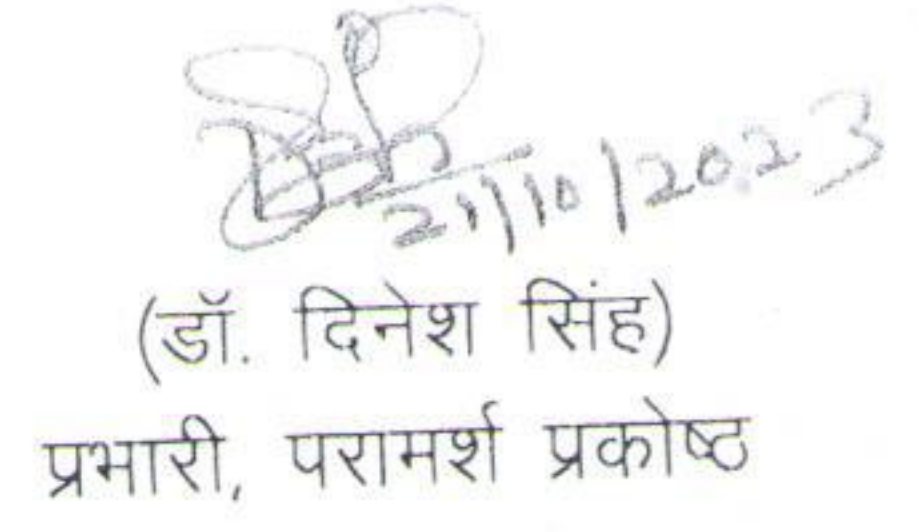 21/10/2023
(डॉ. दिनेश सिंह)
प्रभारी, परामर्श प्रकोष्ठ